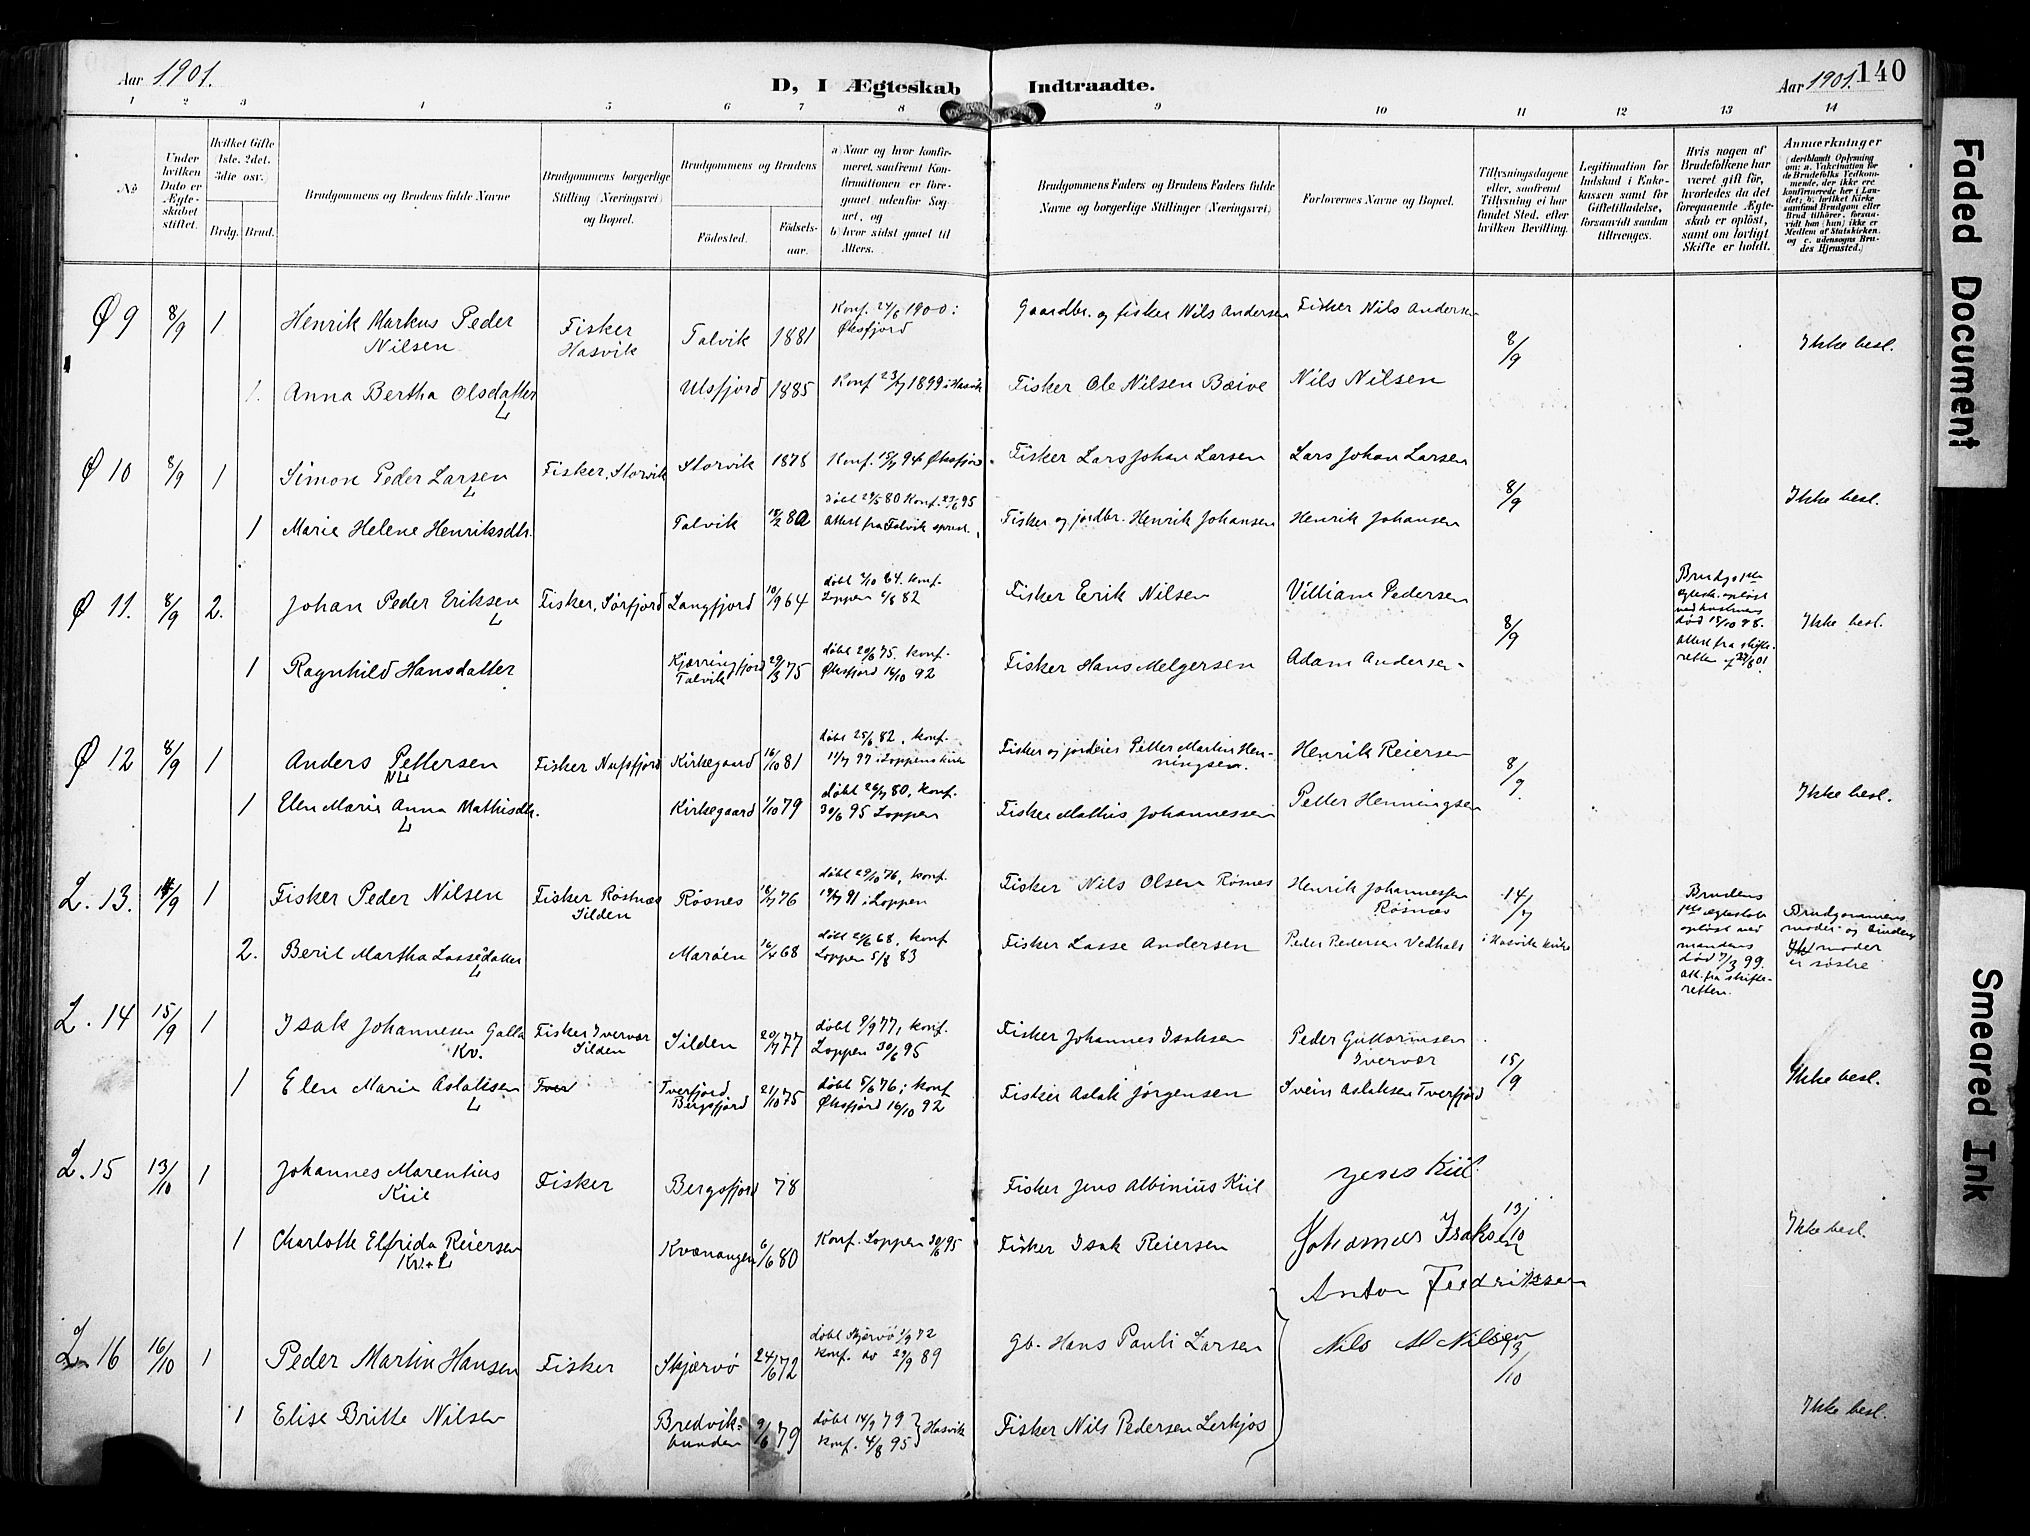 Aar 1901.
D, I Ægteskab Indtraadte.
Aar 1901. 140
1 2 3 4 5 6 7 8 9 10 11 12 13 14
№
Under hvilken Dato er Ægteskabet stiftet.
Hvilket Gifte (1ste, 2det, 3die osv.)
Brdg. Brud.
Brudgommens og Brudens fulde Navne
Brudgommens borgerlige Stilling (Næringsvei) og Bopæl.
Brudgommens og Brudens
Fødested.
Fødselsaar.
a) Naar og hvor konfirmeret, saafremt Konfirmationen er foregaaet udenfor Sognet, og b) hvor sidst gaaet til Alters.
Brudgommens Faders og Brudens Faders fulde Navne og borgerlige Stillinger (Næringsvei)
Forlovernes Navne og Bopæl.
Tillysningsdagene eller, saafremt Tillysning ei har fundet Sted, efter hvilken Bevilling.
Legitimation for Indskud i Enkekassen samt for Giftetilladelse, forsaavidt saadan tiltrænges.
Hvis nogen af Brudefolkene har været gift før, hvorledes da det foregaaende Ægteskab er opløst, samt om lovligt Skifte er holdt.
Anmærkninger (deriblandt Oplysning om: a. Vakcination for de Brudefolks Vedkommende, der ikke ere konfirmerede her i Landet; b. hvilket Kirkesamfund Brudgom eller Brud tilhører, forsaavidt han (hun) ikke er Medlem af Statskirken, og c. udensogns Brudes Hjemsted.)
Ø 9 8/9 1 Henrik Markus Peder Nilsen Fisker Hasvik Talvik 1881 Konf. 24/6 1900 i Øksfjord Gaardbr. og fisker Nils Andersen Fisker Nils Andersen 8/9 Ikke besl.
1. Anna Bertha Olsdatter L Ulsfjord 1885 Konf 23/7 1899 i Hasvik Fisker Ole Nilsen Bæive Nils Nilsen
Ø 10 8/9 1 Simon Peder Larsen L Fisker, Storvik Storvik 1878 Konf. 15/7 94 Øksfjord Fisker Lars Johan Larsen Lars Johan Larsen 8/9 Ikke besl.
1 Marie Helene Henriksdtr. Talvik 18/2 80 døbt 29/5 80 Konf. 23/6 95 Attest fra Talvik Fisker og jordbr. Henrik Johansen Henrik Johansen
Ø 11. 8/9 2. Johan Peder Eriksen L Fisker, Sørfjord Langfjord 10/9 64 døbt 2/10 64. konf. Loppen 6/8 82 Fisker Eerik Nilsen Villiam Pedersen 8/9 Brudgo 1ste egtesk. opløst ved hustruens død 15/10 98. Attest fra skifteretten af 22/8 01. Ikke besl.
1 Ragnhild Hansdatter Kjærringfjord Talvik 29/3 75 døbt 20/6 75, konf. Øksfjord 16/10 92 Fisker Hans Melgersen Adam Andersen
Ø 12 8/9 1 Anders Pettersen NL Fisker Nufsfjord Kirkegaard 16/10 81 døbt 25/6 82, konf. 11/7 97 i Loppens kirke Fisker og jordeier Petter Martin Henningsen. Henrik Reiersen 8/9. Ikke besl.
1 Elen Marie Anna Mathisdtr. L Kirkegaard 1/10 79 døbt 26/7 80, konf. 30/6 95 Loppen Fisker Mathis Johannessen Petter Henningsen
L. 13. 15/9 1 Fisker Peder Nilsen Fisker Røsnæs Silden Røsnes 18/7 76 døbt 29/10 76, konf. 19/7 91 i Loppen Fisker Nils Olsen Røsnes Henrik Johannessen Røsnæs 14/7 Brudens 1ste ægteskab opløst ved mandens død 7/3 99. Att. fra skifteretten. Brudgommens moder og brudens moder er søstre
2. Berit Martha Lassedatter L Marøen 16/4 68 døbt 21/6 68, konf Loppen 5/8 83 Fisker Lasse Andersen Peder Pedersen Vedhals i Hasvik kirke
L. 14 15/9 1 Isak Johannesen Galla Kv. Fisker Ivervær Silden Silden 20/7 77 døbt 9/9 77, konf. Loppen 30/6 95 Fisker Johannes Isaksen Peder Guttormsen Ivervær 15/9 Ikke besl.
1 Elen Marie Aslaksen L Tver Tverfjord Bergsfjord 21/10 75 døbt 5/6 76; konf Øksfjord 16/10 92 Fisker Aslak Jørgensen Svein Aslaksen Tverfjord
L. 15 13/10 1 Johannes Marentius Kiil Fisker Bergsfjord 78 Fisker Jens Albinius Kiil Jens Kiil 13/10 Ikke besl.
1 Charlotte Elfrida Reiersen Kv. + L Kvænangen 6/6 80 Konf. Loppen 30/6 95 Fisker Isak Reiersen Johannes Isaksen
Anton Fredriksen
L. 16 16/10 1 Peder Martin Hansen Fisker Skjærvø 24/6 72 døbt Skjervø 1/9 72 konf. do 29/9 89 Gb. Hans Pauli Larsen Nils M Nilsen 13/10
1 Elise Britte Nilsen Bredvikbunden 9/6 79 døbt 14/9 79 konf. 4/8 95 Hasvik Fisker Nils Pedersen Lerkjos Ikke besl.
Faded Document
Smeared Ink